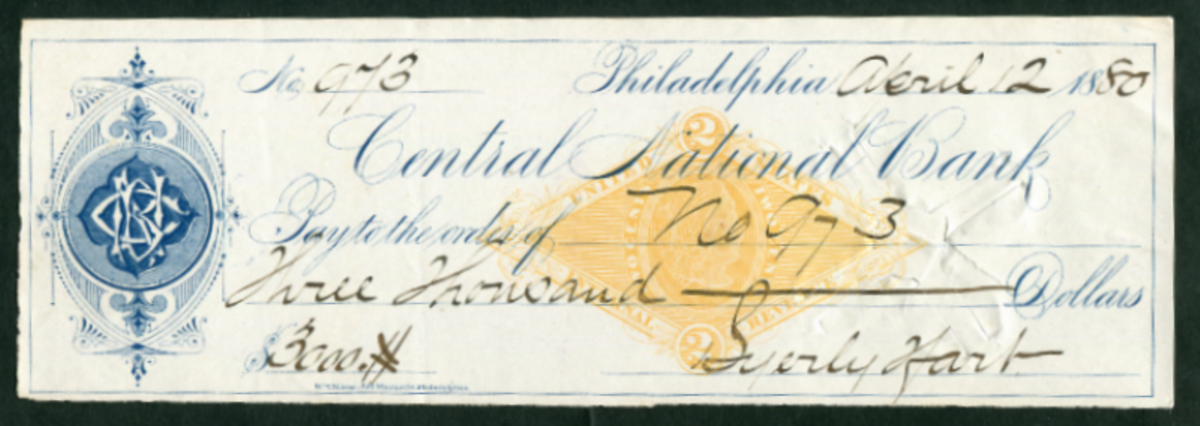 No 973 Philadelphia April 12 1880
Central National Bank
Pay to the order of No 973
Three Thousand Dollars
$3000.
Byerly Hart
2
UNITED STATES
INTERNAL REVENUE
2